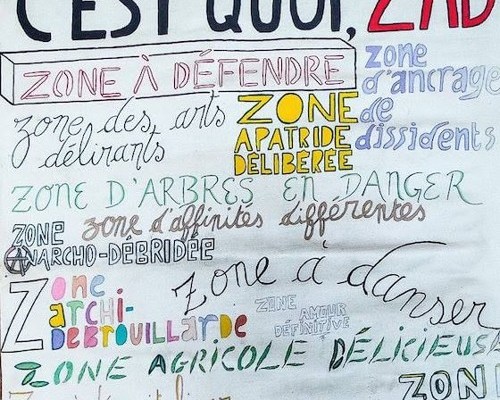 C'EST QUOI, ZAD
ZONE À DÉFENDRE
zone d'ancrage de dissidents
zone des arts délirants
ZONE APATRIDE DÉLIBÉRÉE
ZONE D'ARBRES EN DANGER
zone d'affinités différentes
ZONE ANARCHO-DÉBRIDÉE
zone à danser
Zone archi-DEBROUILLARDE
ZONE AMOUR DEFINITIVE
ZONE AGRICOLE DÉLICIEUSE
ZON